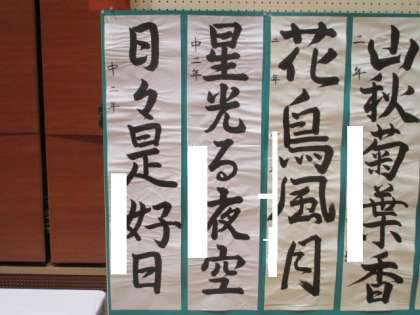 山秋菊葉香
二年
花鳥風月
二年
星光る夜空
中二年
日々是好日
中二年